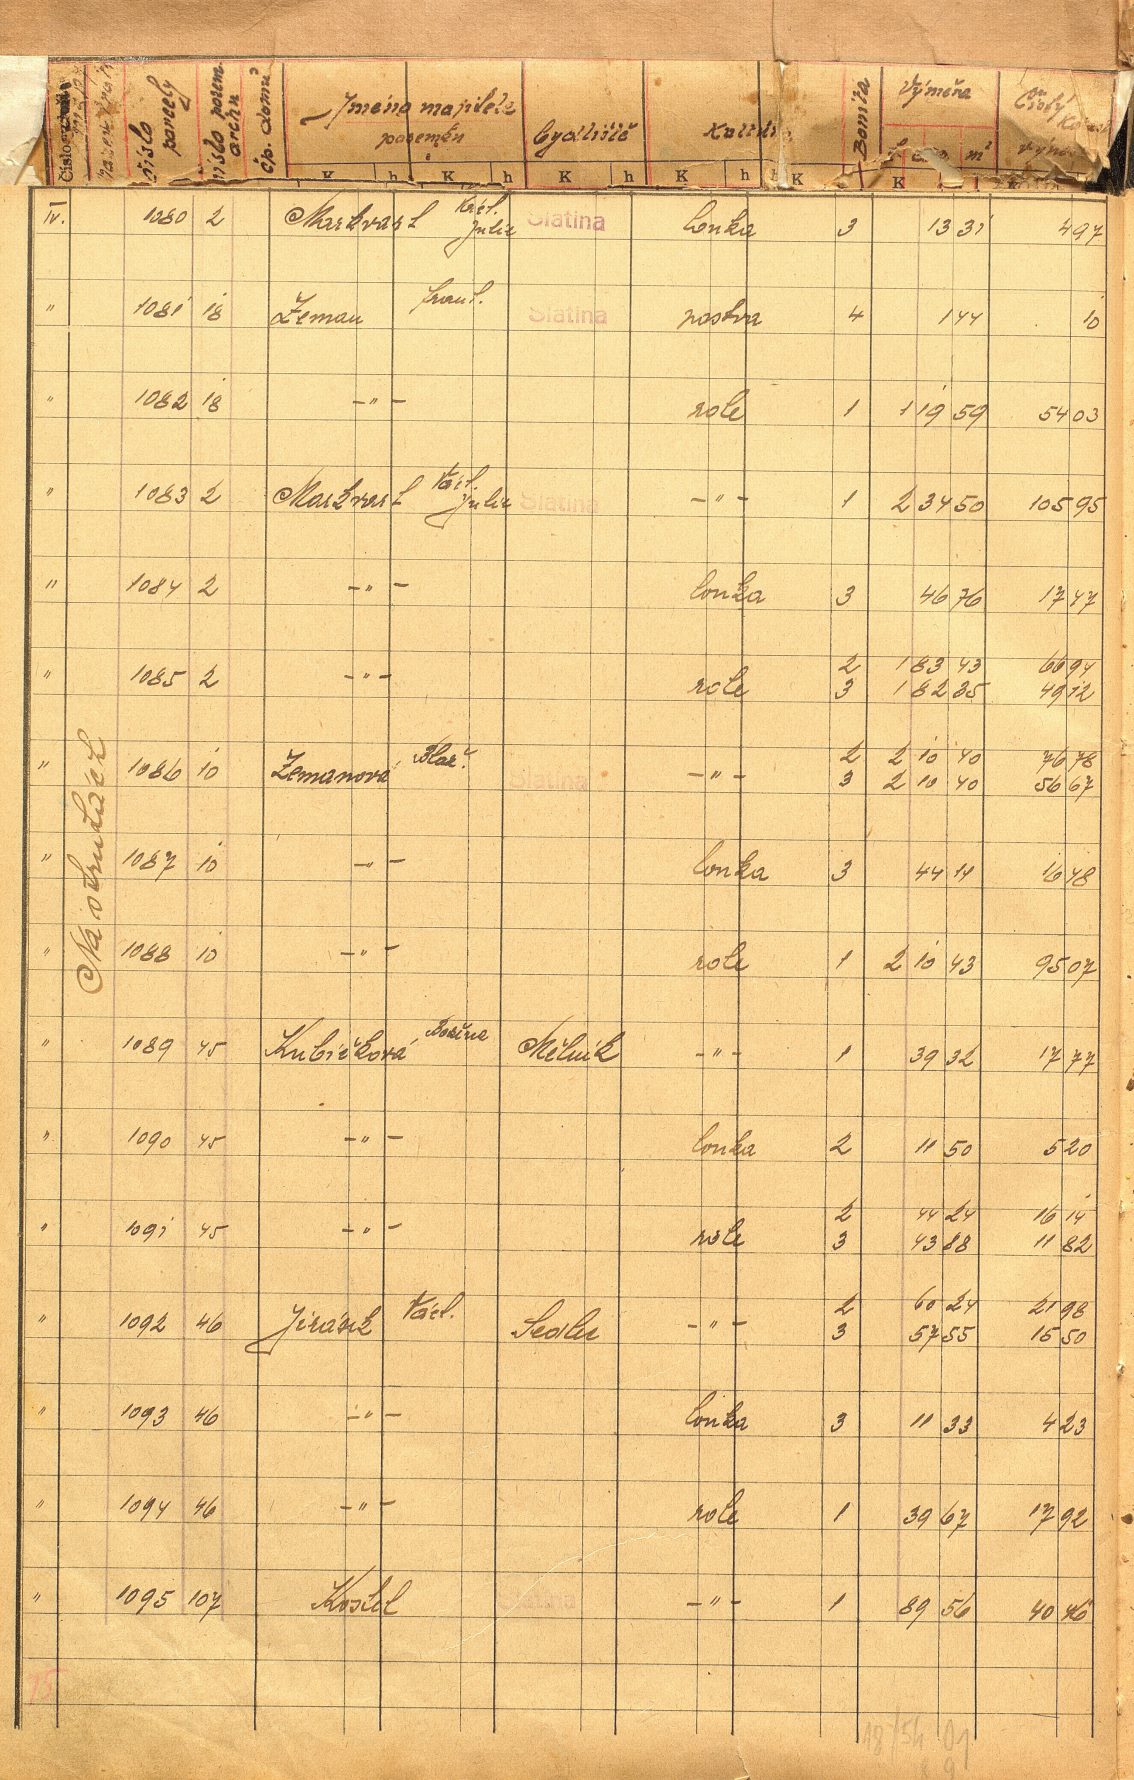 číslo parcely
číslo pozem. archu
čp. domů
Jméno majitele pozemku
bydliště
Kultura
Bonita
Výměra
Čistý
K h K h K h K h K K
m²
IV. 1080 2 Markvart Václ. Julie Slatina louka 3 13 31 4 97
" 1081 18 Zeman Frant. Slatina pastva 4 1 44 10
" 1082 18 -"- role 1 1 19 59 54 03
" 1083 2 Markvart Václ. Julie Slatina -"- 1 2 34 50 105 95
" 1084 2 -"- louka 3 46 76 17 47
" 1085 2 -"- role 2 1 83 43 66 94
3 1 82 85 49 12
" 1086 10 Zemanová Slatina -"- 2 2 10 40 76 78
3 2 10 40 56 67
" 1087 10 -"- louka 3 44 11 16 48
" 1088 10 -"- role 1 2 10 43 95 07
" 1089 45 Kubíčková Božena Mělník -"- 1 39 32 17 77
" 1090 45 -"- louka 2 11 50 5 20
" 1091 45 -"- role 2 44 24 16 14
3 43 88 11 82
" 1092 46 Jirásek Václ. Sedlec -"- 2 60 24 21 98
3 57 55 15 50
" 1093 46 -"- louka 3 11 33 4 23
" 1094 46 -"- role 1 39 67 17 92
" 1095 107 Kostel Slatina -"- 1 89 56 40 46
15